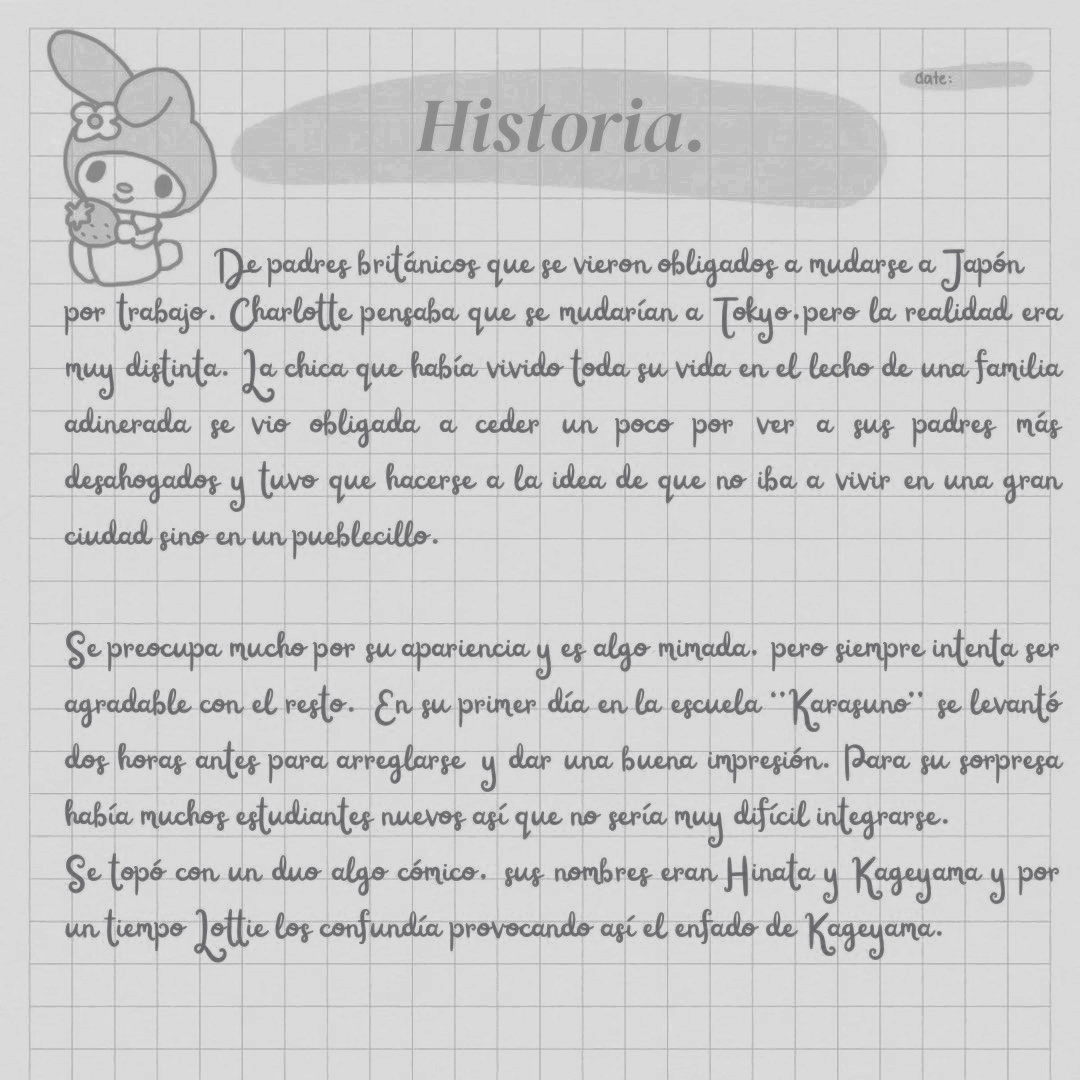 date:
Historia.
De padres británicos que se vieron obligados a mudarse a Japón
por trabajo. Charlotte pensaba que se mudarían a Tokyo.pero la realidad era
muy distinta. La chica que había vivido toda su vida en el lecho de una familia
adinerada se vio obligada a ceder un poco por ver a sus padres más
desahogados y tuvo que hacerse a la idea de que no iba a vivir en una gran
ciudad sino en un pueblecillo.
Se preocupa mucho por su apariencia y es algo mimada. pero siempre intenta ser
agradable con el resto. En su primer día en la escuela ¨Karasuno¨ se levantó
dos horas antes para arreglarse y dar una buena impresión. Para su sorpresa
había muchos estudiantes nuevos así que no sería muy difícil integrarse.
Se topó con un duo algo cómico. sus nombres eran Hinata y Kageyama y por
un tiempo Lottie los confundía provocando así el enfado de Kageyama.